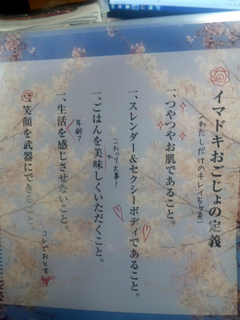 イマドキおごじょの定義
(わたしだけのキレイちゃ
一、つやつやお肌であること。
一、スレンダー&セクシーボディであること。
これって大事!
一、ごはんを美味しくいただくこと。
年齢?
一、生活を感じさせないこと。
笑顔を武器にできること
コレでおとす